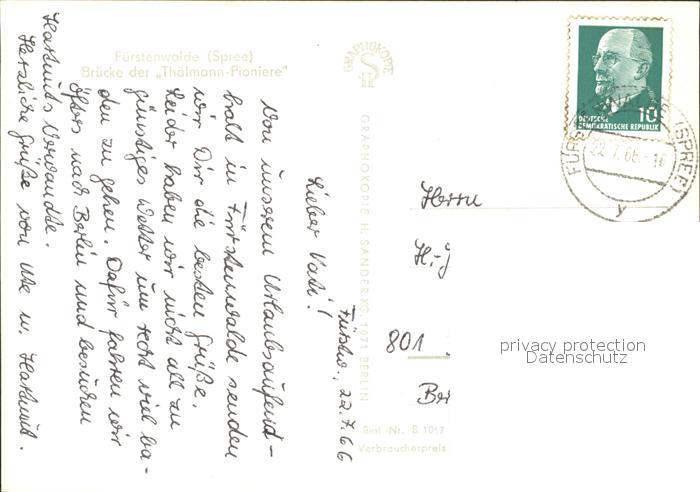 Fürstenwalde (Spree)
Brücke der „Thälmann-Pioniere"
Fürstw., 22.7.66
Lieber Vati!
Von unserem Urlaubsaufent-
halt in Fürstenwalde senden
wir Dir die besten Grüße.
Leider haben wir nicht all zu
günstiges Wetter um recht viel ba-
den zu gehen. Dafür fahren wir
öfters nach Berlin und besuchen
Hartmuts Verwandte.
Herzliche Grüße von Ute u. Hartmut.
GRAPHOKOPIE
H S
GRAPHOKOPIE H. SANDER KG, 1071 BERLIN
Best.-Nr. B 1057
Verbraucherpreis
10
DEUTSCHE
DEMOKRATISCHE REPUBLIK
FÜRSTENWALDE (SPREE)
22.7.66.-16
y
Herrn
H.-J
801
Ber
privacy protection
Datenschutz